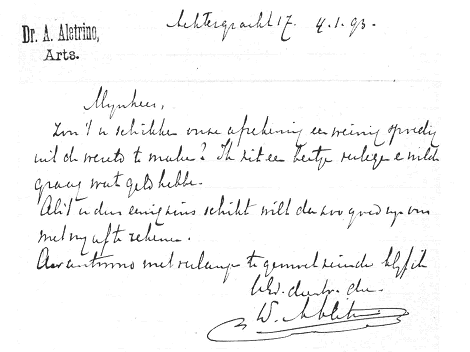 Dr. A. Aletrino,
Arts.
Achtergracht 17. 4.1.93.
Mynheer,
Zou 't u schikken onze afrekening een weinig spoedig
uit de wereld te maken? Ik zit een beetje verlegen e wilde
graag wat geld hebbe.
Als 't u dus eenigszins schikt wilt du zoo goed zyn om
met my af te rekenen.
met verlangen te gemoet ziende blyf ik